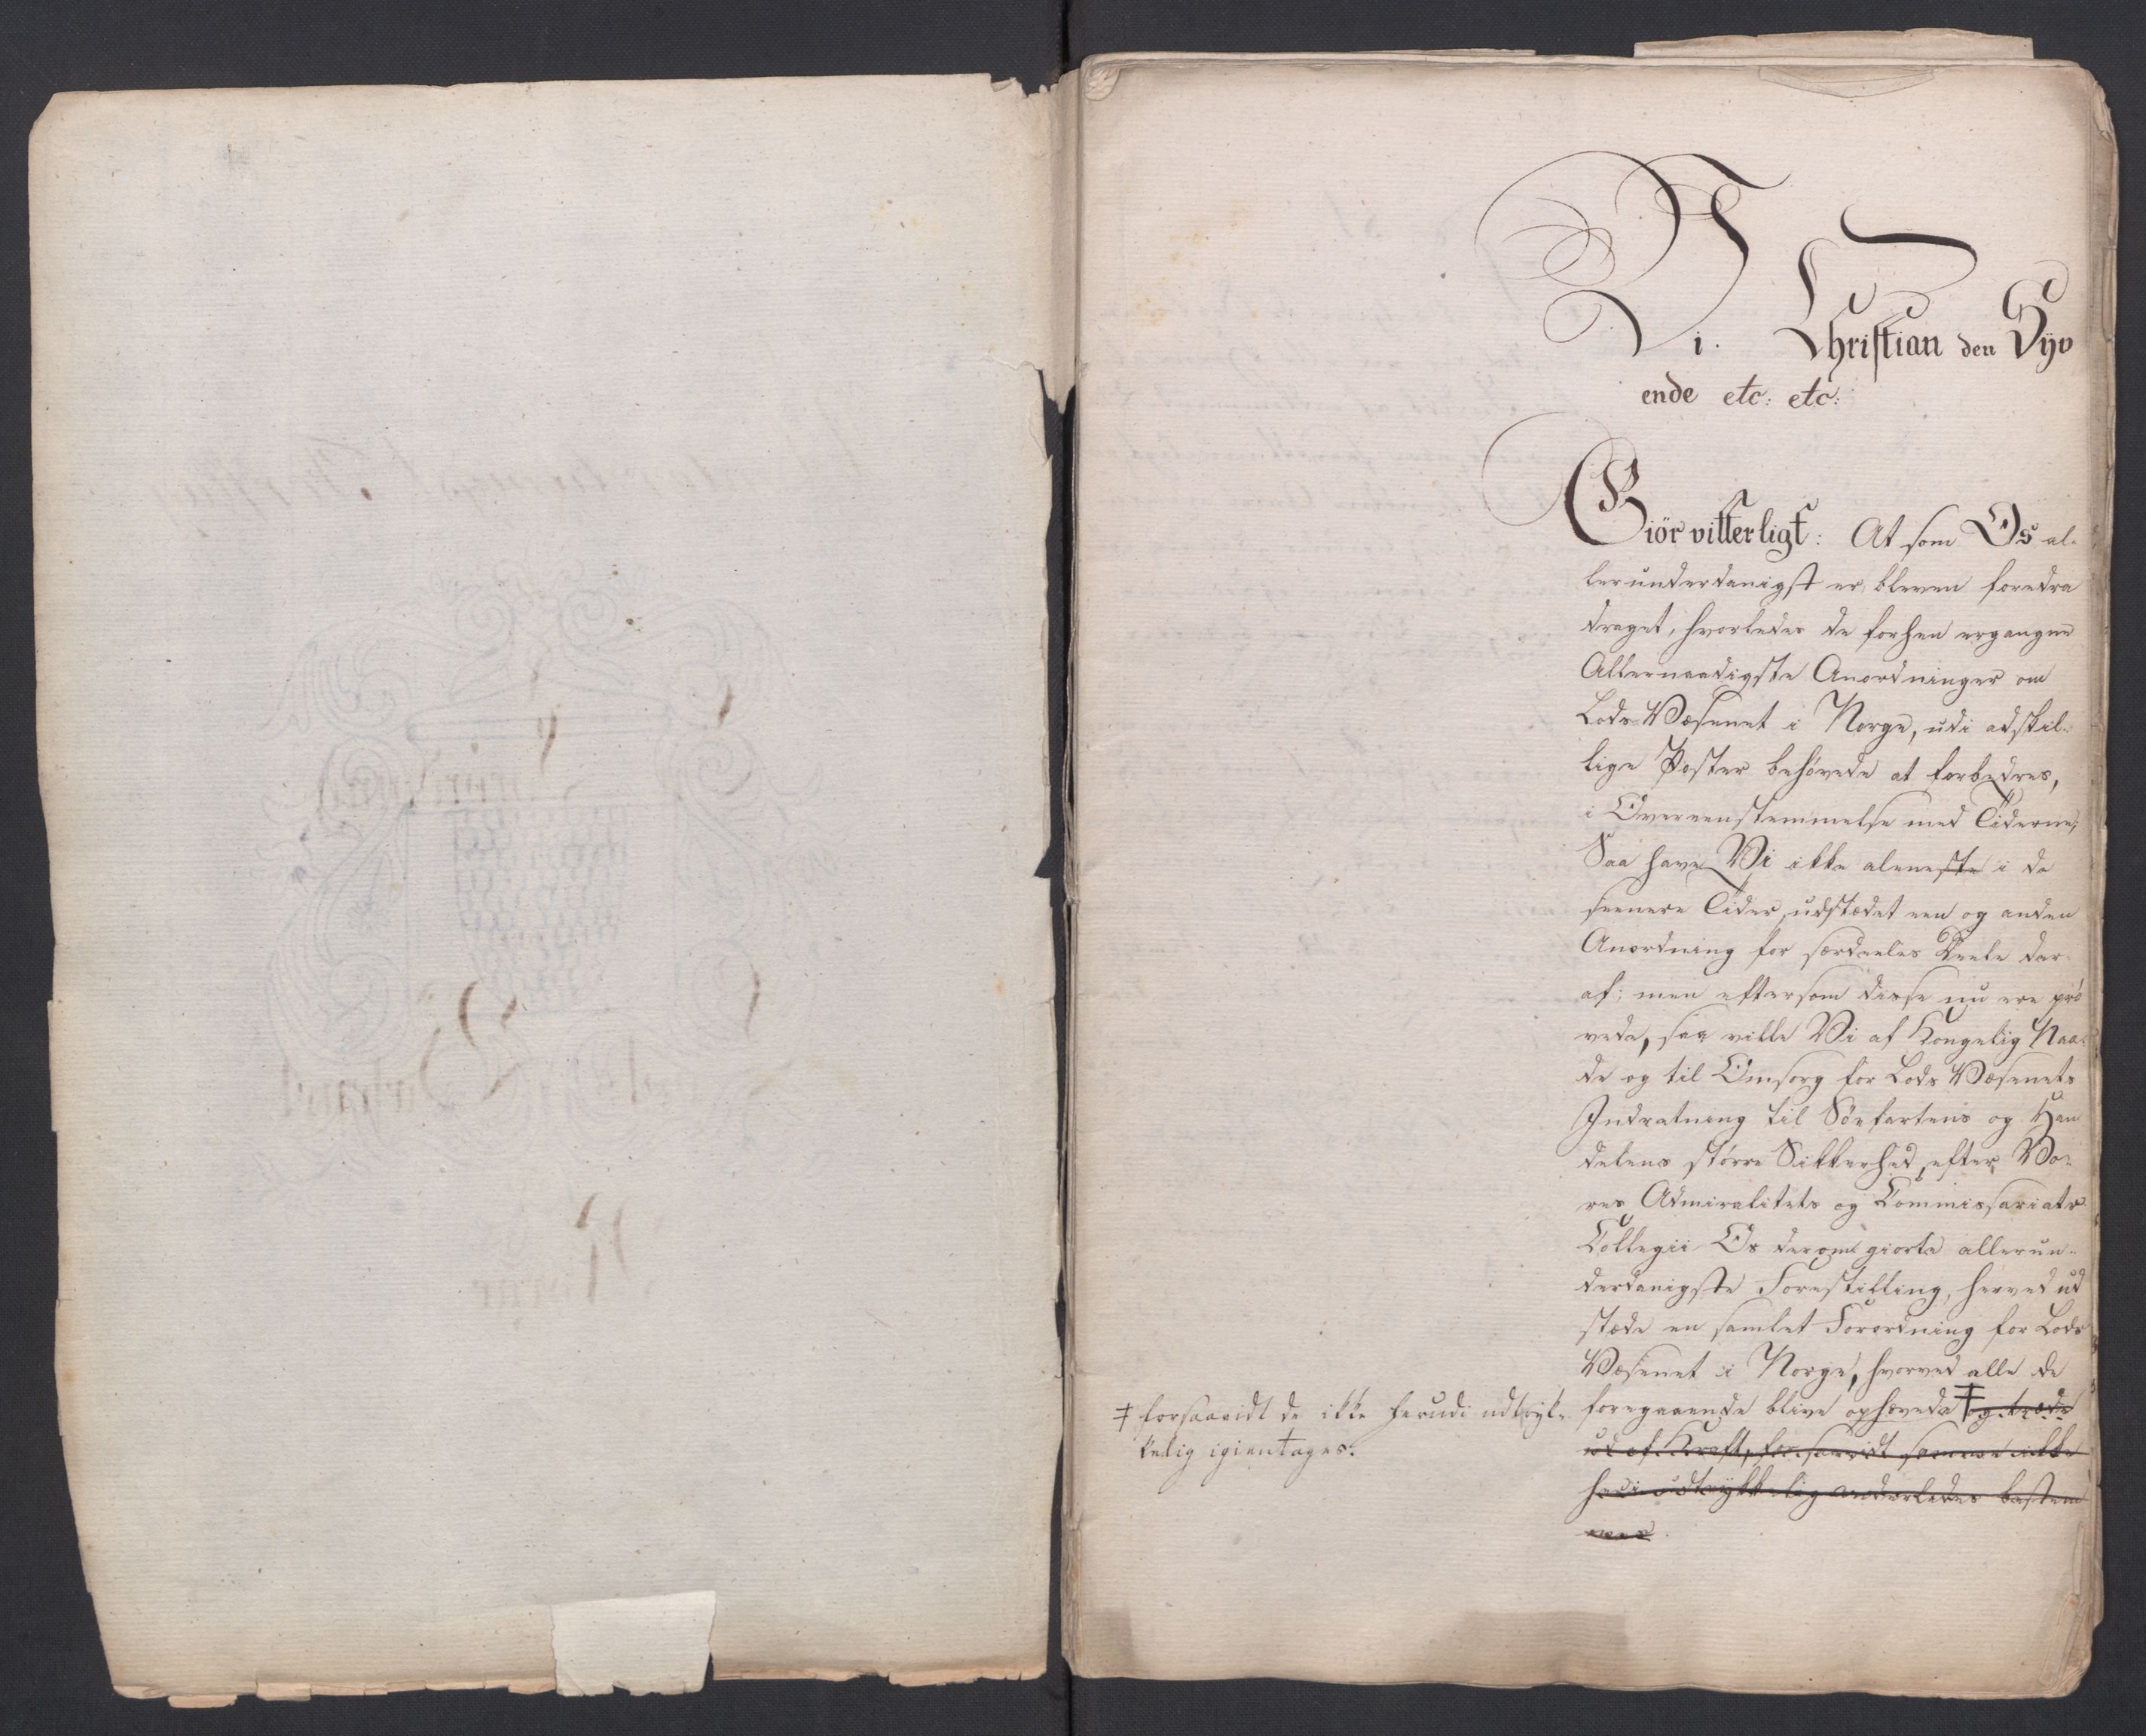 Vi. Christian den Syv
ende etc: etc:
Giör vitterligt: At som Os al-
lerunderdanigst er bleven foredra
draget, hvorledes de forhen ergangne
Allernaadigste Anordninger om
Lods-Væsenet i Norge, udi adskil-
lige Poster behövede at forbedres,
i Overeensstemmelse med Tiderne,
Saa have Vi ikke aleneste i de
seenere Tider, udstædet een og anden
Anordning for særdeeles Deele der-
af; men eftersom disse nu ere prö
vede, saa ville Vi af Kongelig Naa-
de og til Omsorg for Lods Væsenets
Indretning til Söefartens og Han
delens större Sikkerhed, efter Vo-
res Admiralitets og Commissariats
Collegii Os derom giorte allerun-
derdanigste Forestilling, herved ud
stæde en samlet Forordning for Lods
Væsenet i Norge, hvorved alle de
foregaaende blive ophævede ‡ og træde
ud af Kraft, forsaavidt samme ikke
heri udtrykkelig anderledes bestem
mes.
‡ forsaavidt de ikke herudi udtryk-
kelig igientages.